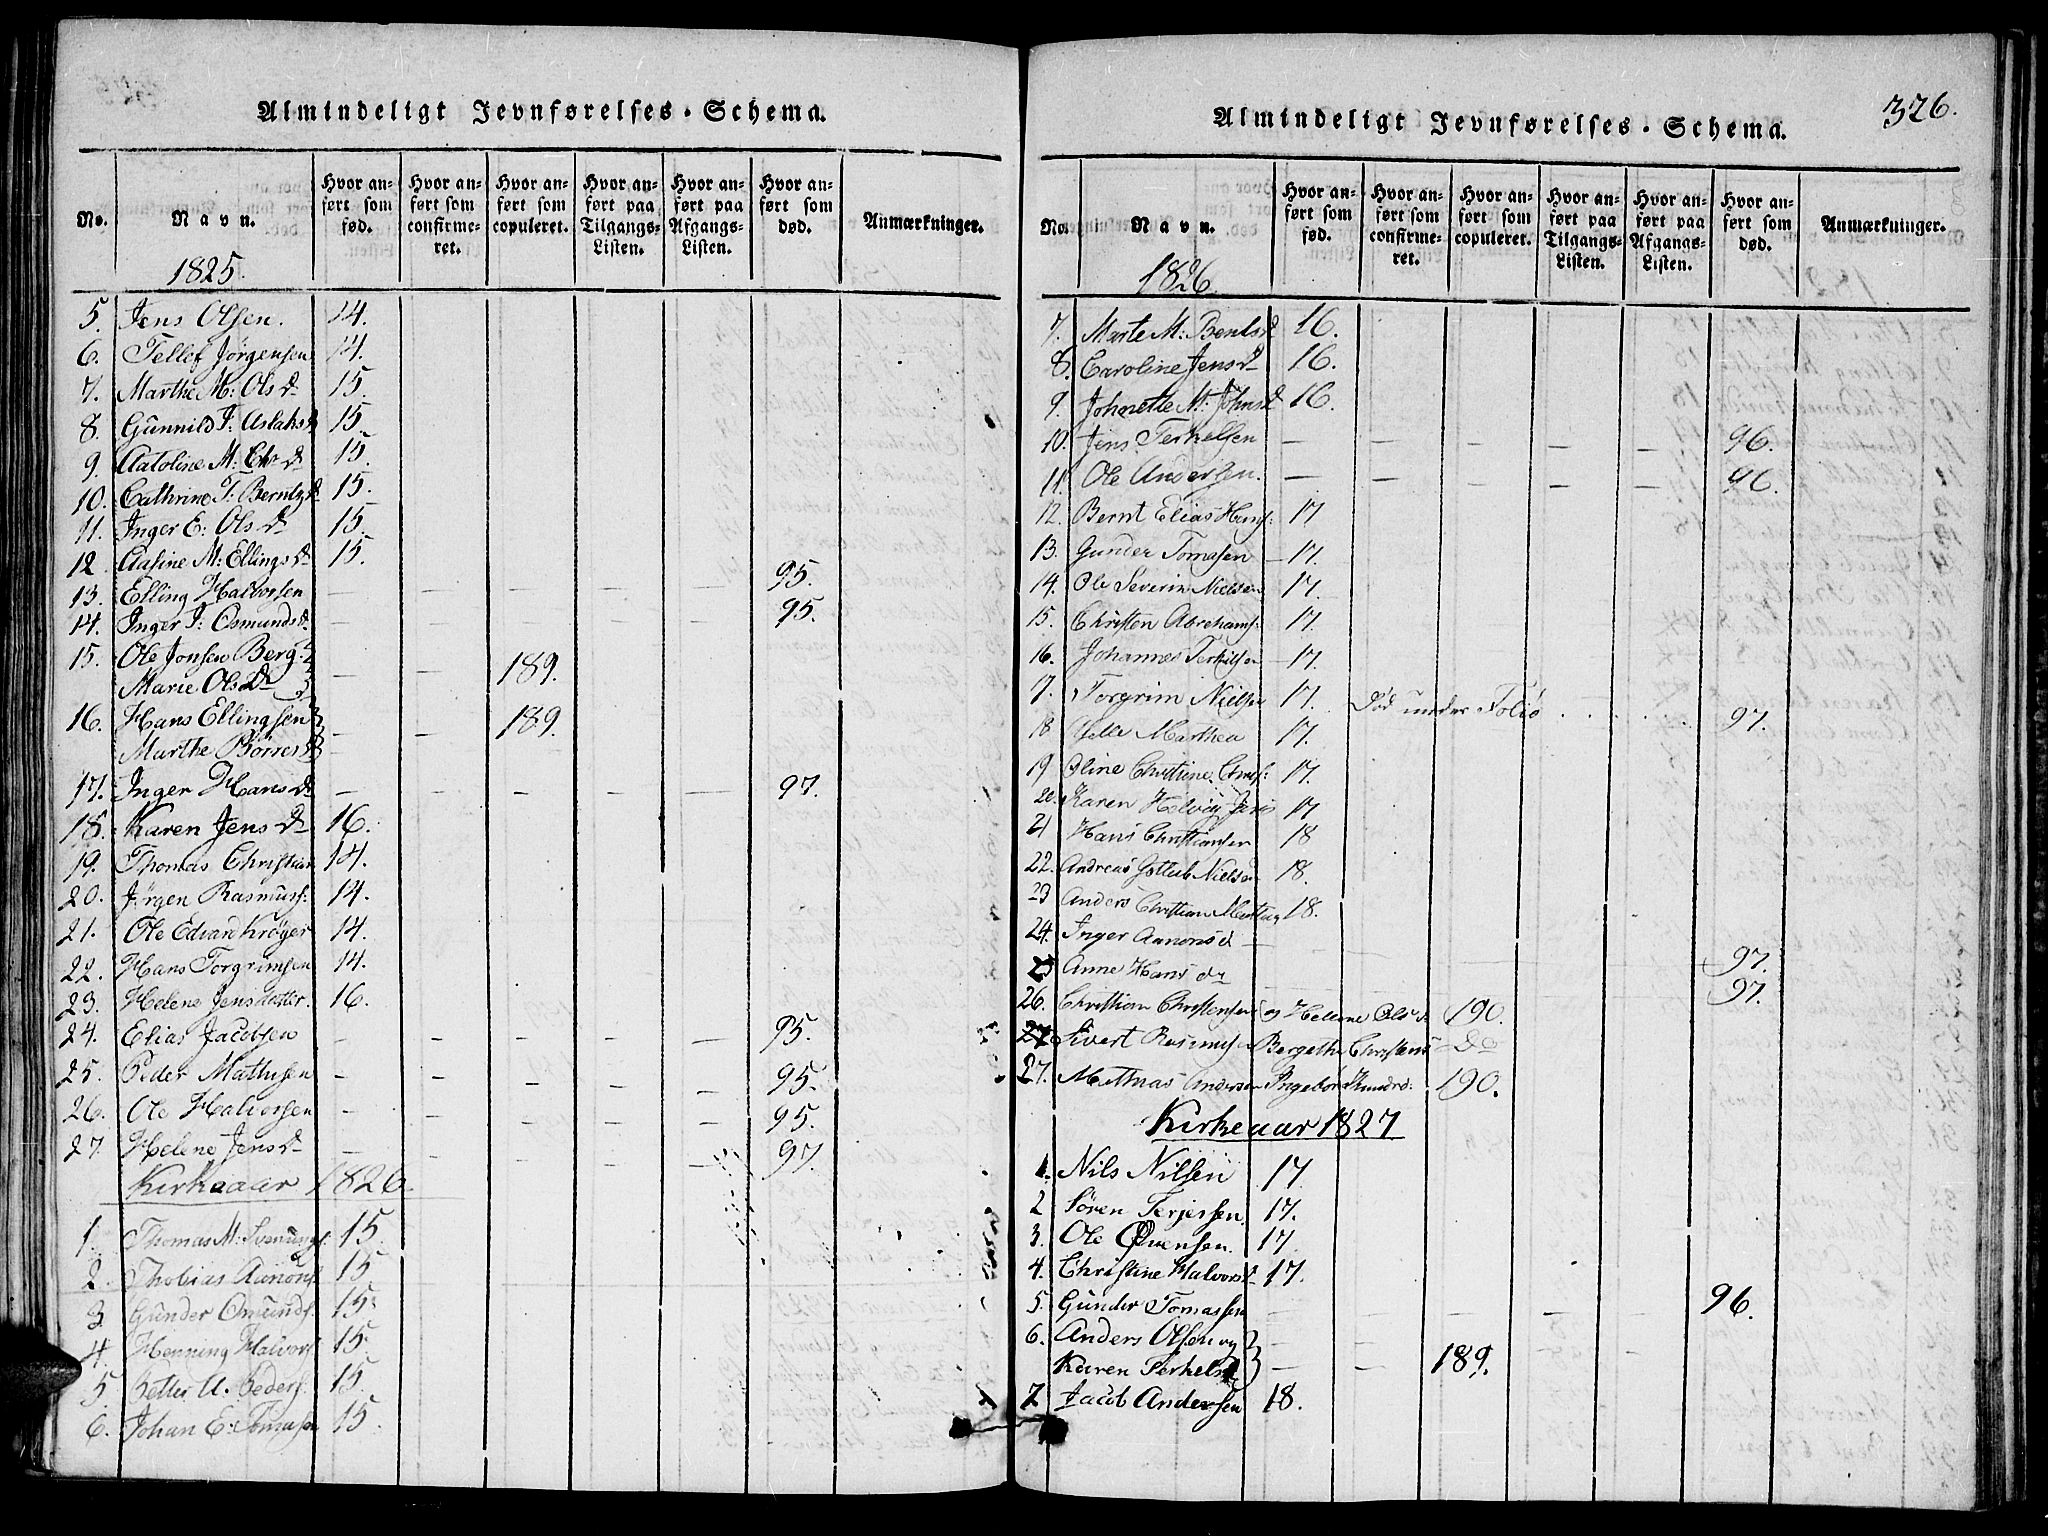 Almindeligt Jevnførelses-Schema.
No. Navn. Hvor anført som fød. Hvor anført som confirmeret. Hvor anført som copuleret. Hvor anført paa Tilgangs-Listen. Hvor anført paa Afgangs-Listen. Hvor anført som død. Anmærkninger.
1825.
5. Jens Olsen. 14.
6. Tellef Jörgensen 14.
7. Marthe M: Ols D 15.
8. Gunnild J: Aslaks D 15.
9. M: Chr D 15.
10. Cathrine J: Berntz D 15.
11. Inger E: Ols D 15.
12 Aasine M: Ellings D 15.
13. Elling Halvorsen — — — — — 95.
14. Inger J: Osmunds D — — — — — 95.
15. Ole Jonsen Berg
Marie Ols D — — 189.
16. Hans Ellingsen
Marthe Börres D — — 189.
17. Inger Hans D — — — — — 97.
18. Karen Jens D 16.
19. Thomas Christian 14.
20. Jörgen Rasmus: 14.
21. Ole Edvard Kröger 14.
22. Hans Torgrimsen 14.
23. Helene Jensdatter. 16.
24. Elias Jacobsen — — — — — 95.
25. Peder Mathisen — — — — — 95.
26. Ole Halvorsen — — — — — 95.
27. Helene Jens D — — — — — 97.
Kirkeaar 1826
1. Thomas M: Svenungs. 15.
2. Thobias Aanons. 15
3. Gunder Omunds. 15.
4. Henning Halvors. 15.
5. Petter A. Peders. 15.
6. Johan E: Tomasen 15.
Almindeligt Jevnførelses-Schema. 326.
No. Navn. Hvor anført som fød. Hvor anført som confirmeret. Hvor anført som copuleret. Hvor anført paa Tilgangs-Listen. Hvor anført paa Afgangs-Listen. Hvor anført som død. Anmærkninger.
1826.
7. Marte M: Bents D 16.
8. Caroline Jens D 16.
9. Johnette M: Johns D 16.
10. Jens Terkelsen — — — — — 96.
11. Ole Andersen. — — — — — 96.
12. Bernt Elias Hans: 17
13. Gunder Tomasen 17.
14. Ole Severin Nielsen 17.
15. Christen Abrehams: 17.
16. Johannes Terkilsen 17.
17. Torgrim Nielsen 17. Död under Folio . . . . . 97.
18 Helle Marthea 17.
19 Oline Christine 17.
20. Karen Helvig Jens 17
21 Hans Christiansen 18
22. Andreas Gotlieb Nielsen 18.
23 Anders Christian 18.
24. Inger Aanons d — — — — — 97.
25 Anne Hans dr — — — — — 97.
26. Christian Christensen og Hellene Ols d. 190.
27 Sivert Rasmus. Bergethe Christens — Do
27. Mathias Andersen Ingebor Knuds: 190.
Kirkeaar 1827
1. Nils Nilsen 17
2 Sören Terjessen. 17.
3. Ole Evensen. 17.
4. Christine Halvors D 17.
5. Gunder Tomassen — — — — — 96.
6. Anders Olsen og
Karen Terkels D — — 189.
7 Jacob Andersen 18.